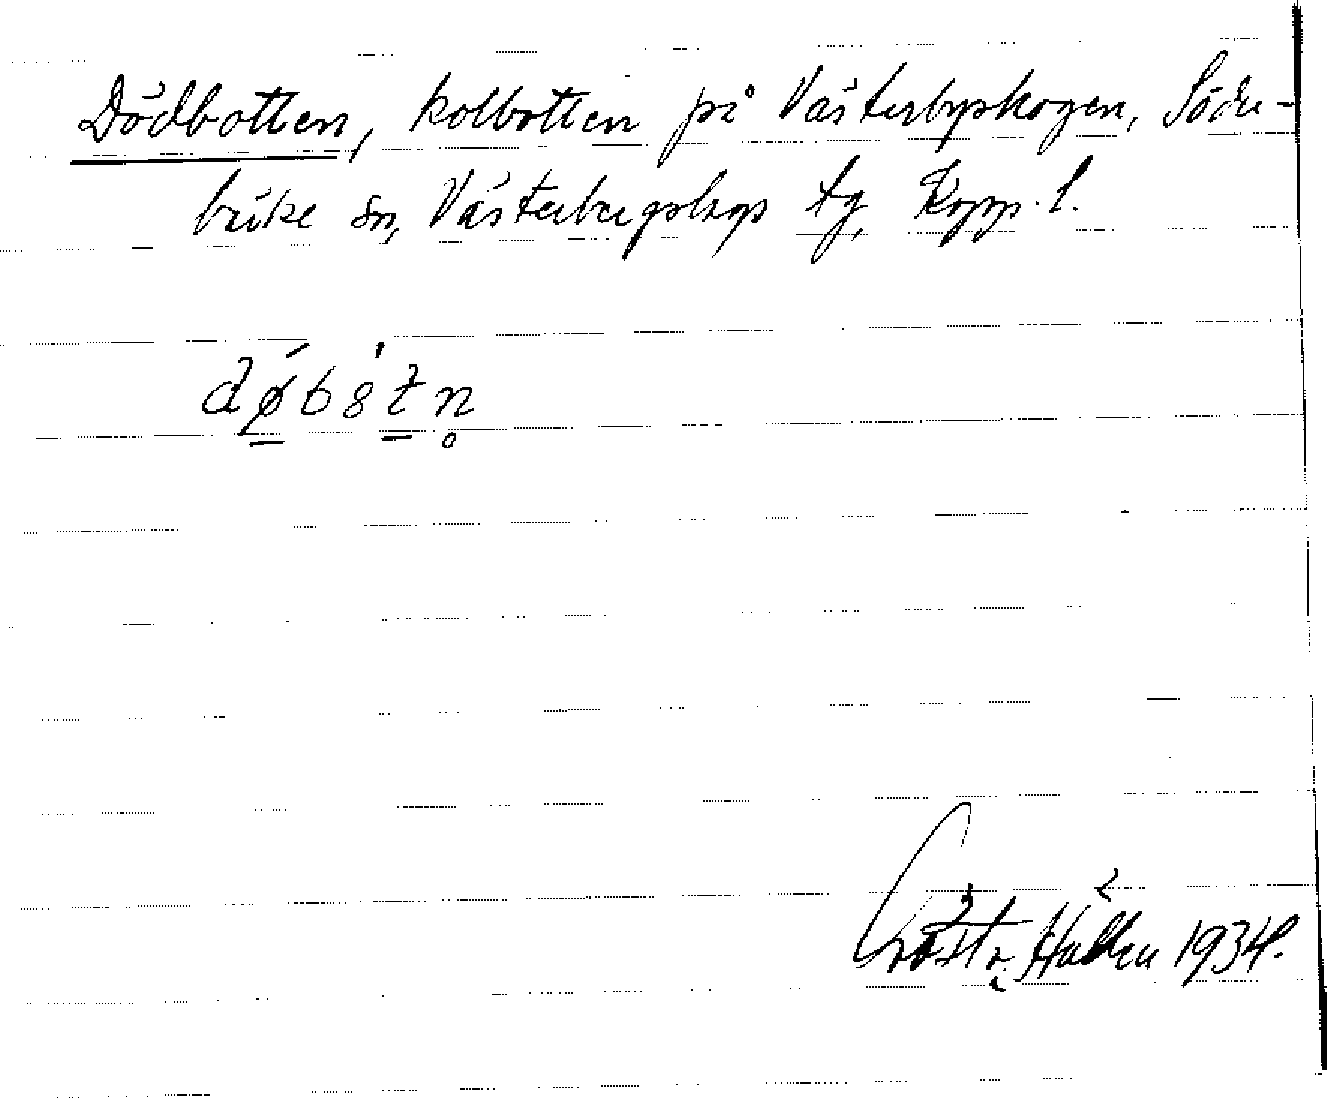 Dödbotten, kolbotten på Västerbyskogen, Söder-
bärke sn, Västerbergslags tg, Kopp. l.
døb8tn̥
Hallen 1934.